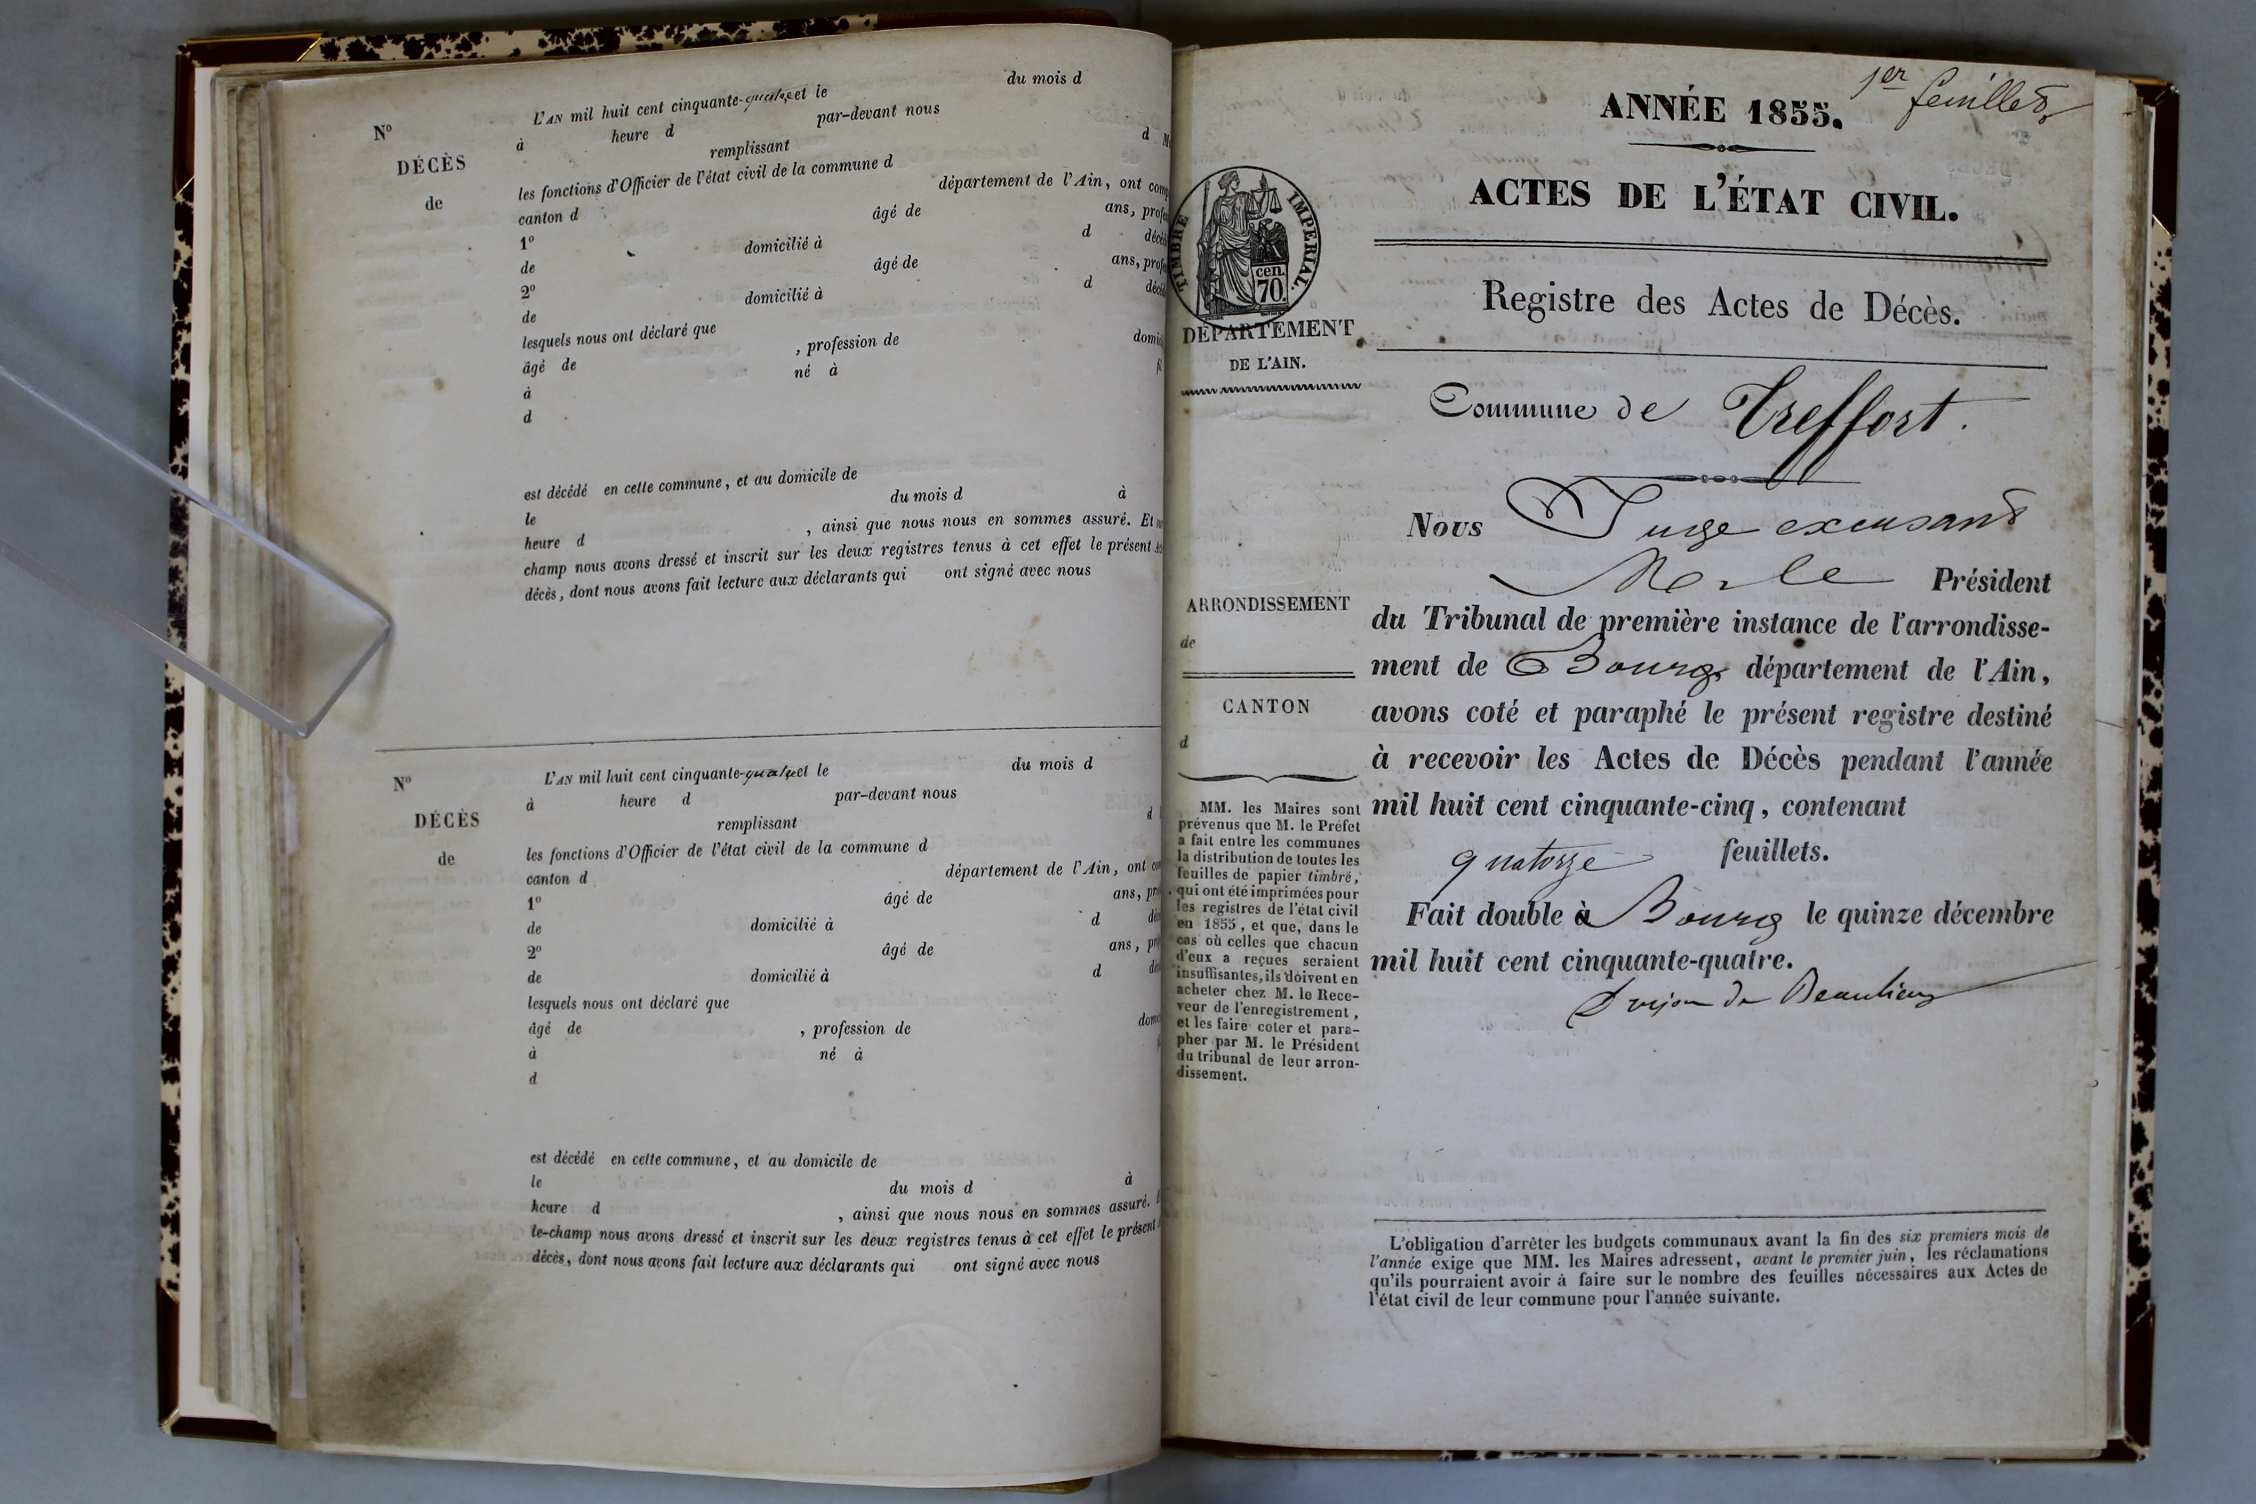 N° L'AN mil huit cent cinquante-quatre et le du mois d
à heure d par-devant nous
DÉCÈS remplissant d M
de les fonctions d'Officier de l'état civil de la commune d
canton d département de l'Ain, ont comp
1° âgé de ans, profe
de domicilié à d décé
2° âgé de ans, profe
de domicilié à d décé
lesquels nous ont déclaré que
âgé de , profession de domi
à né à
d
est décédé en cette commune, et au domicile de
le du mois d à
heure d , ainsi que nous nous en sommes assuré. Et
champ nous avons dressé et inscrit sur les deux registres tenus à cet effet le présent
décès, dont nous avons fait lecture aux déclarants qui ont signé avec nous
N° L'AN mil huit cent cinquante-quatre et le du mois d
à heure d par-devant nous
DÉCÈS remplissant d
de les fonctions d'Officier de l'état civil de la commune d
canton d département de l'Ain, ont
1° âgé de ans, pro
de domicilié à d
2° âgé de ans, pr
de domicilié à d
lesquels nous ont déclaré que
âgé de , profession de dom
à né à
d
est décédé en cette commune, et au domicile de
le du mois d à
heure d , ainsi que nous nous en sommes assuré.
le-champ nous avons dressé et inscrit sur les deux registres tenus à cet effet le présent
décès, dont nous avons fait lecture aux déclarants qui ont signé avec nous
1er feuillet
ANNÉE 1855.
ACTES DE L'ÉTAT CIVIL.
TIMBRE IMPERIAL.
cen.
70.
DÉPARTEMENT
DE L'AIN.
Registre des Actes de Décès.
Commune de Treffort.
Nous Juge excusant
Merle Président
du Tribunal de première instance de l'arrondisse-
ment de Bourg département de l'Ain,
avons coté et paraphé le présent registre destiné
à recevoir les Actes de Décès pendant l'année
mil huit cent cinquante-cinq, contenant
quatorze feuillets.
Fait double à Bourg le quinze décembre
mil huit cent cinquante-quatre.
de Beaulieu
ARRONDISSEMENT
de
CANTON
d
MM. les Maires sont
prévenus que M. le Préfet
a fait entre les communes
la distribution de toutes les
feuilles de papier timbré,
qui ont été imprimées pour
les registres de l'état civil
en 1855, et que, dans le
cas où celles que chacun
d'eux a reçues seraient
insuffisantes, ils doivent en
acheter chez M. le Rece-
veur de l'enregistrement,
et les faire coter et para-
pher par M. le Président
du tribunal de leur arron-
dissement.
L'obligation d'arrêter les budgets communaux avant la fin des six premiers mois de
l'année exige que MM. les Maires adressent, avant le premier juin, les réclamations
qu'ils pourraient avoir à faire sur le nombre des feuilles nécessaires aux Actes de
l'état civil de leur commune pour l'année suivante.